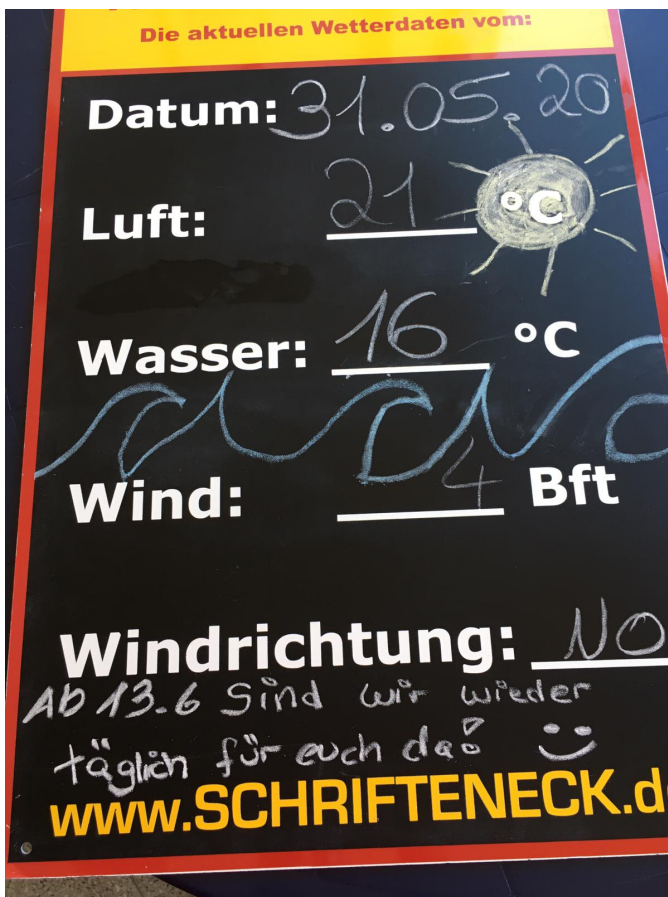 Die aktuellen Wetterdaten vom:
Datum: 31.05.20
Luft: 21 °C
Wasser: 16 °C
Wind: 4 Bft
Windrichtung: NO
Ab 13.6 Sind wir wieder
täglich für euch da!
www.SCHRIFTENECK.d